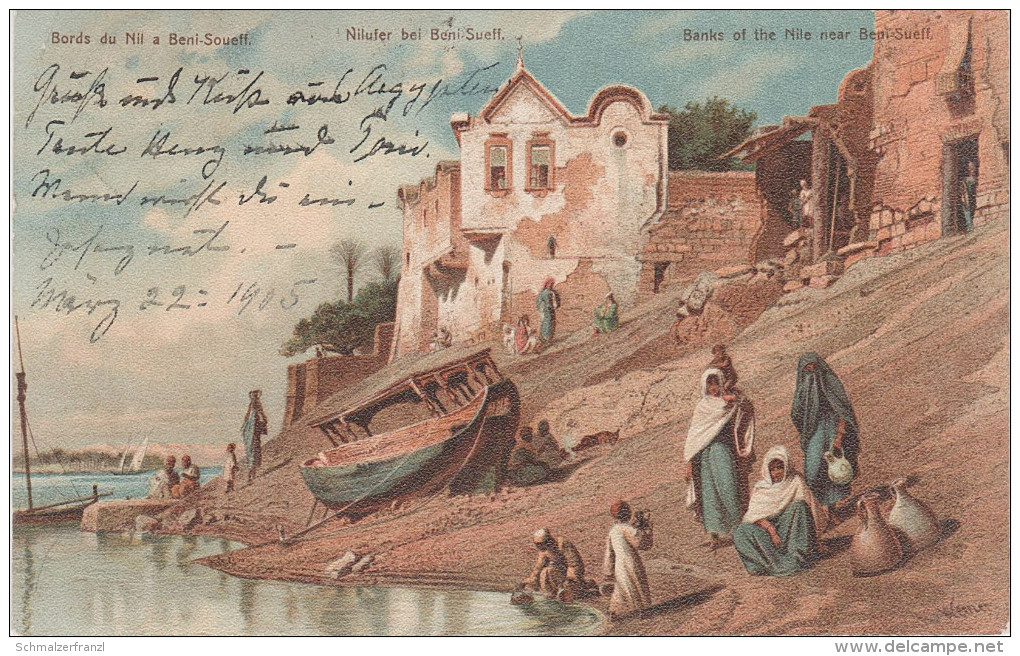 Bords du Nil a Beni-Soueff.
Nilufer bei Beni-Sueff.
Banks of the Nile near Beni-Sueff.
Grüße und Küße aus Aegypten
Tante Heny und Toni.
Wann wirst du ein-
März 22 = 1905
Werner
Schmalzerfranzl
www.delcampe.net